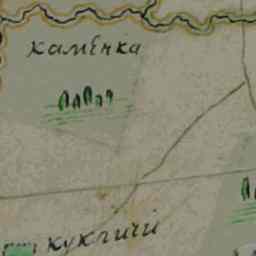 каменка
кукличи